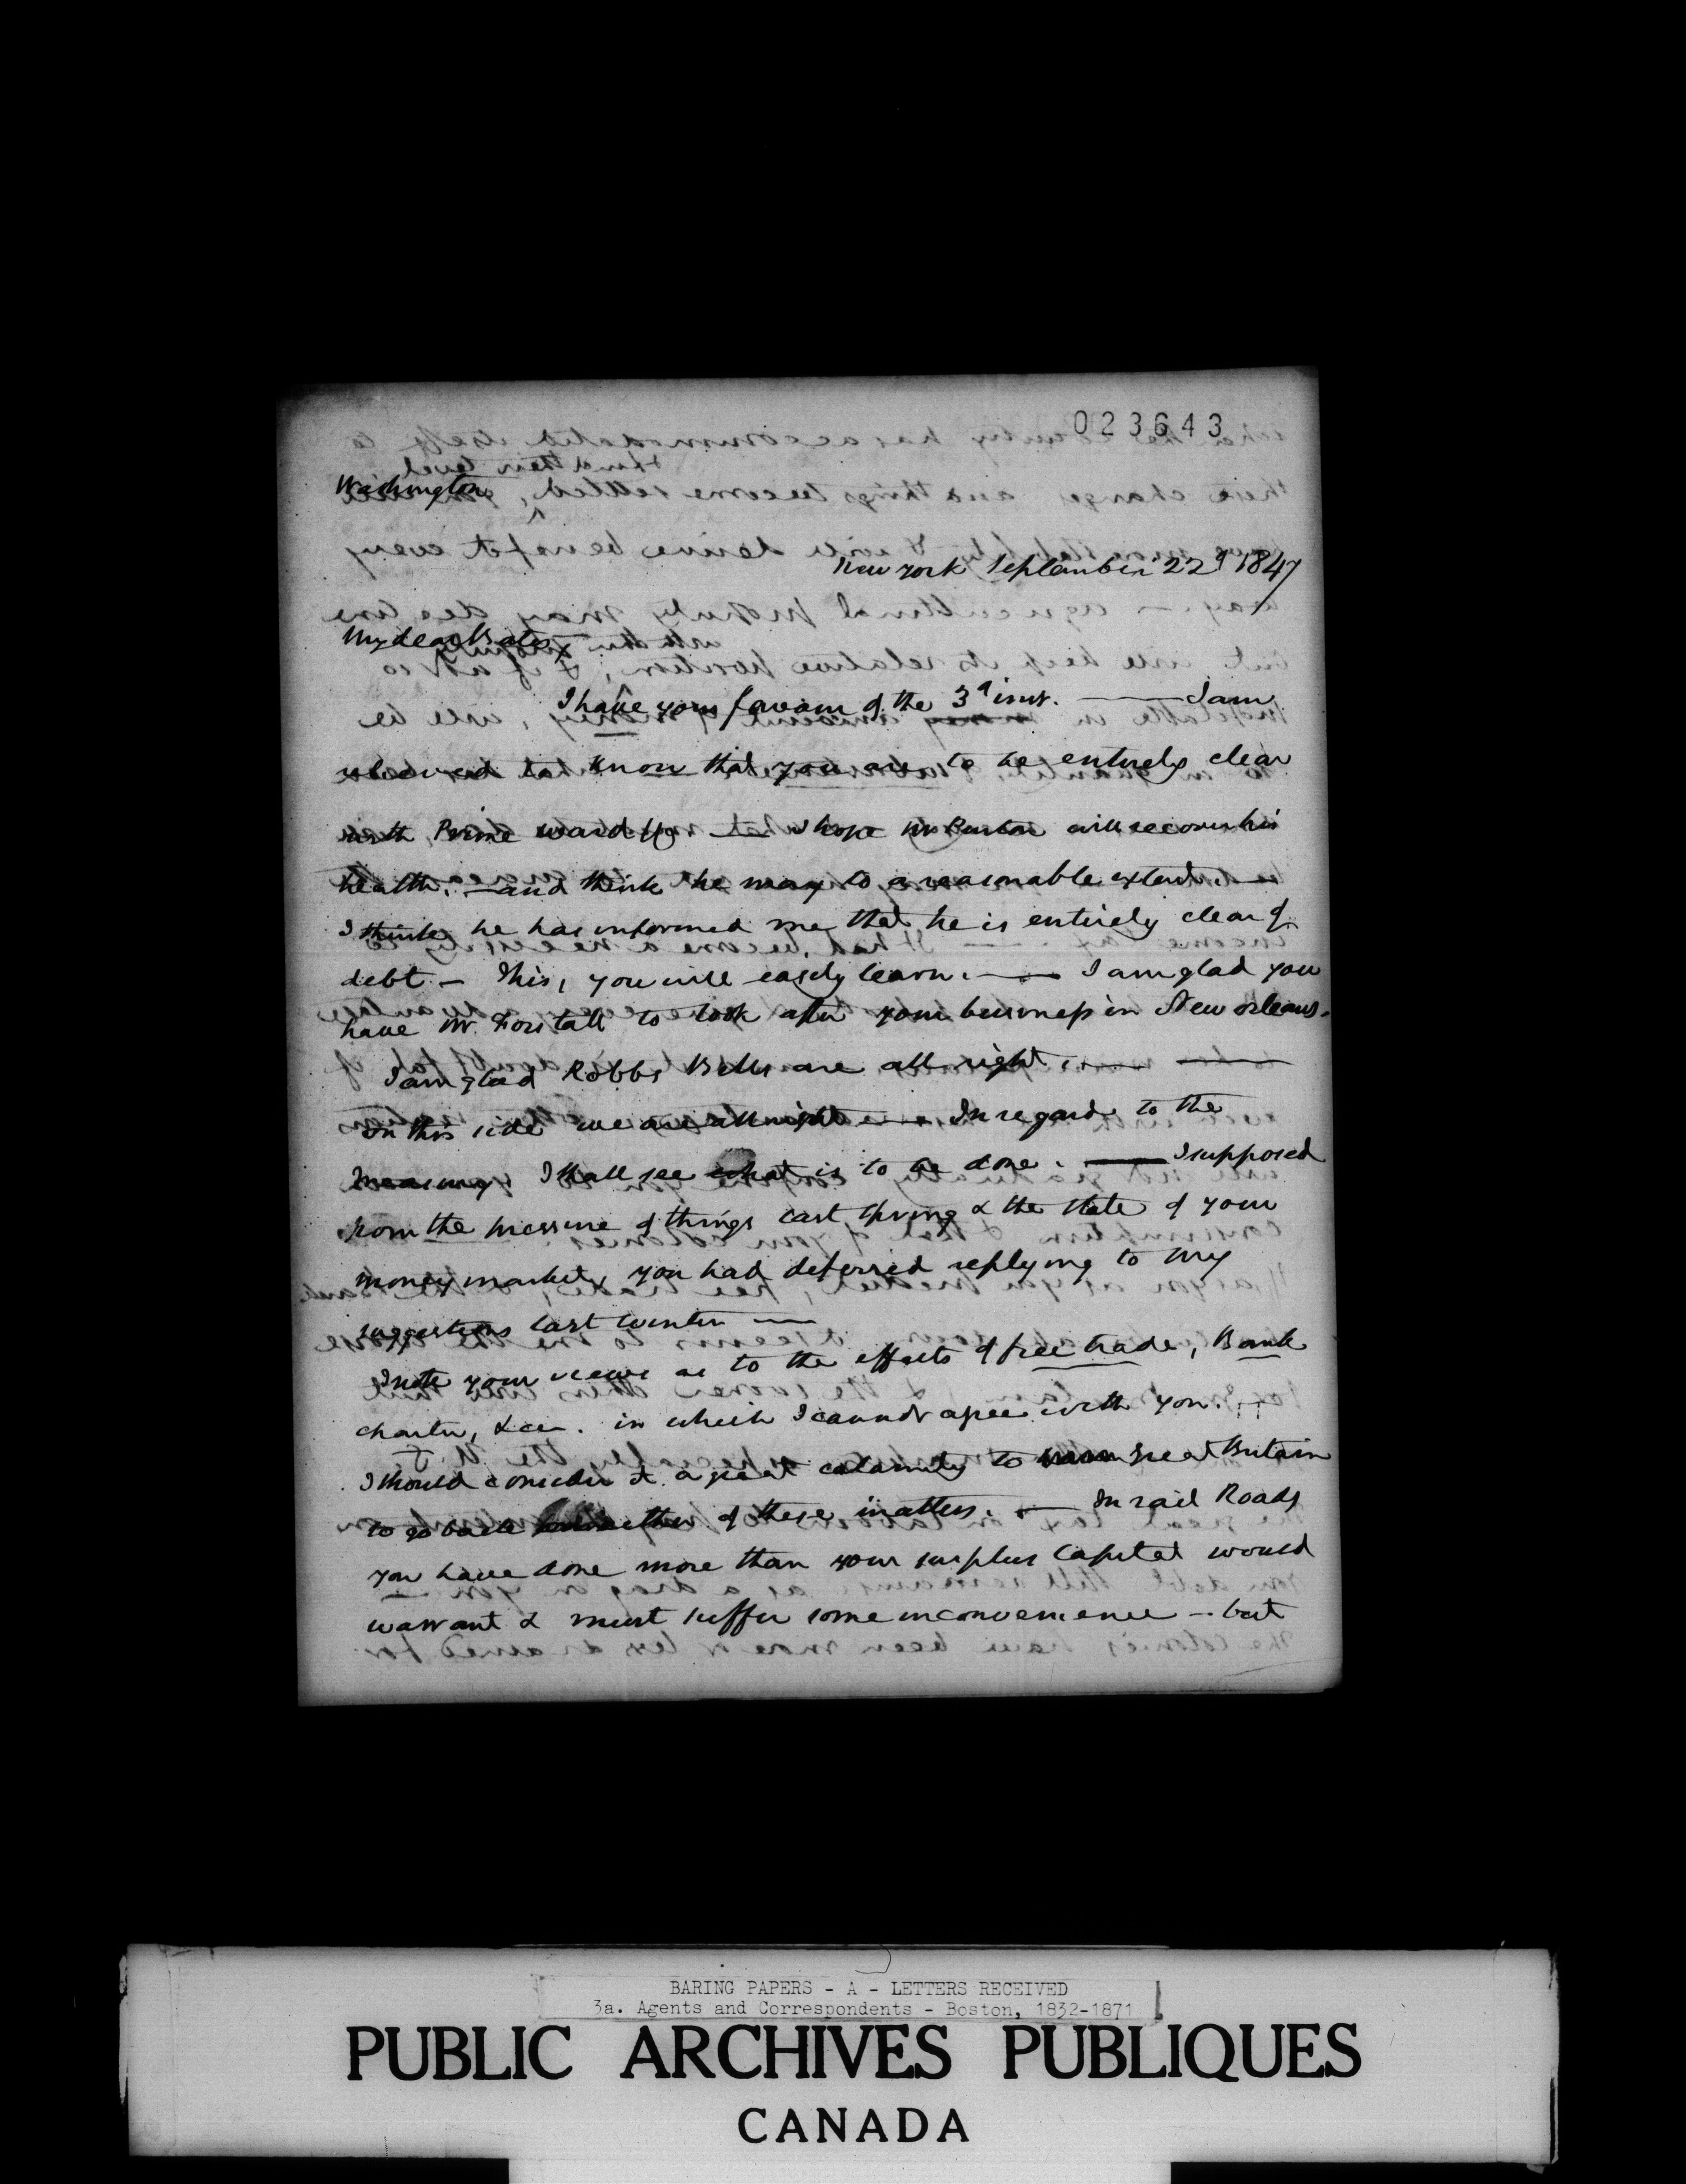 023643
Washington
New York September 22d 1847
My dear Bates
I have your favour of the 3d inst. — I am
relieved to know that you are to be entirely clear
with Prime Ward & Co. — I hope Mr Burton will recover his
health, — and think he may to a reasonable extent. —
I think he has informed me that he is entirely clear of
debt — This, you will easily learn. — I am glad you
have Mr. Forstall to look after your business in New Orleans.
I am glad Robbs Bills are all right. —
On this side we are all right — In regard to the
Treasury, I shall see what is to be done. — I supposed
from the pressure of things last Spring & the State of your
money market, you had deferred replying to my
suggestions last winter —
I note your views as to the effects of free trade, Bank
charter, &c. in which I cannot agree with you. —
I should consider it a great calamity to Great Britain
to go back of these matters. — In rail Roads
you have done more than your surplus Capital would
warrant & must suffer some inconvenience — but
BARING PAPERS - A - LETTERS RECEIVED
3a. Agents and Correspondents - Boston, 1832-1871
PUBLIC ARCHIVES PUBLIQUES
CANADA